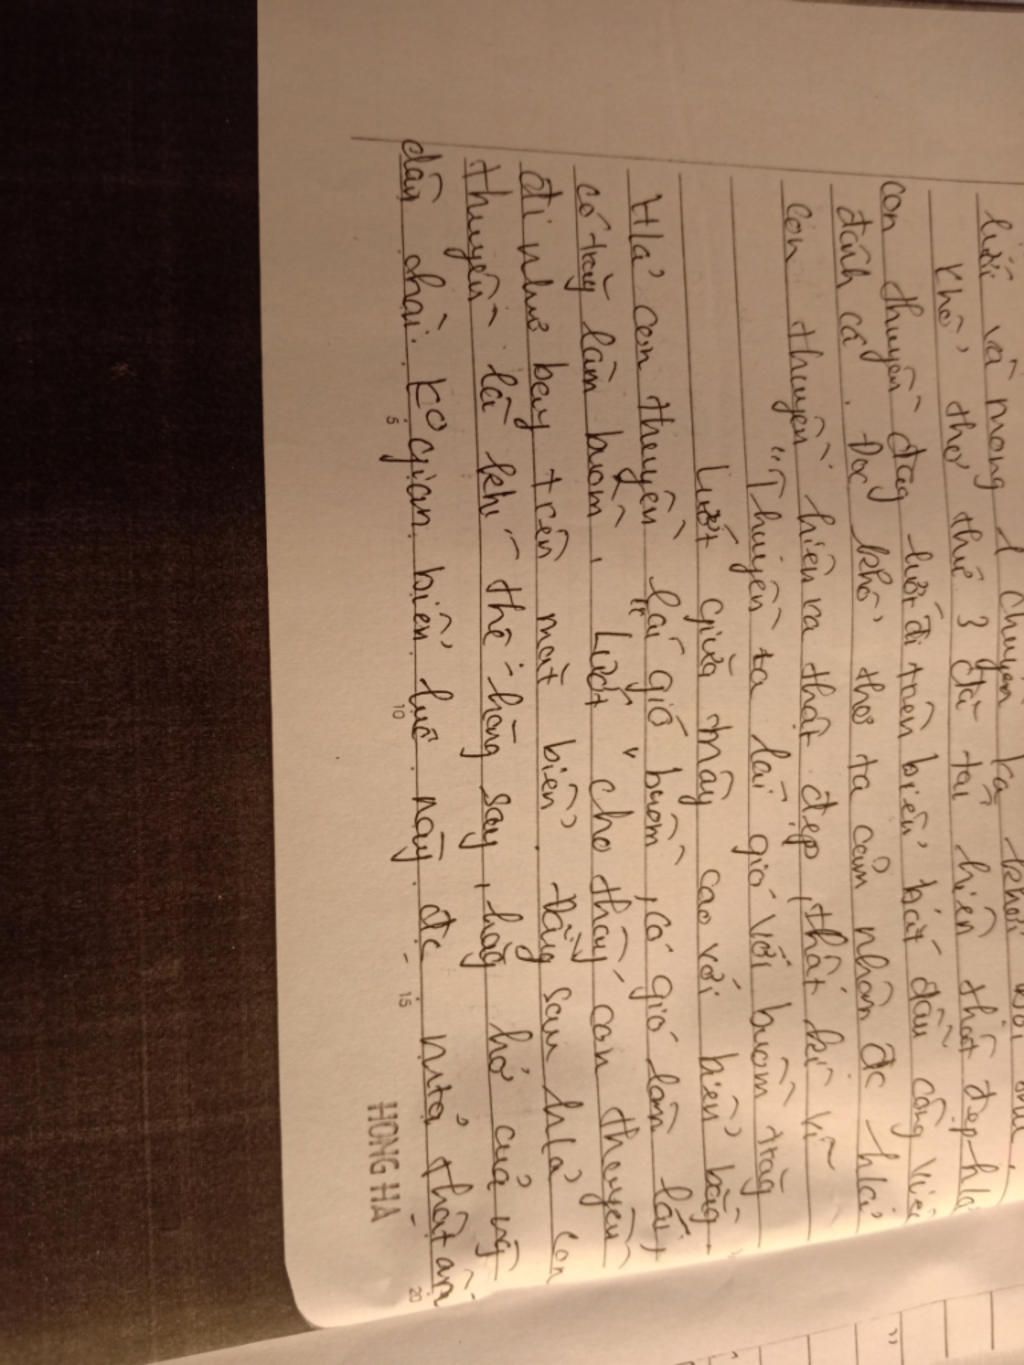 lưới và mong 1 chuyến ra khơi
Khổ thơ thứ 3 đã tái hiện thật đẹp h/ả
con thuyền đag lướt đi trên biển bắt đầu công việc
đánh cá. Đọc khổ thơ ta cảm nhận đc h/ả
con thuyền hiện ra thật đẹp, thật kì vĩ
"Thuyền ta lái gió với buồm trăg
Lướt giữa mây cao với biển bằng
H/ả con thuyền lái gió buồm, có gió làm lái,
có trăg làm buồm. "Lướt" cho thấy con thuyền
đi như bay trên mặt biển. Đằng sau h/ả con
thuyền là khí thế hăng say, hăg hở của ng
dân chài. Ko gian biển lúc này đc m/tả thật ấn
5
10
15
20
HONG HA